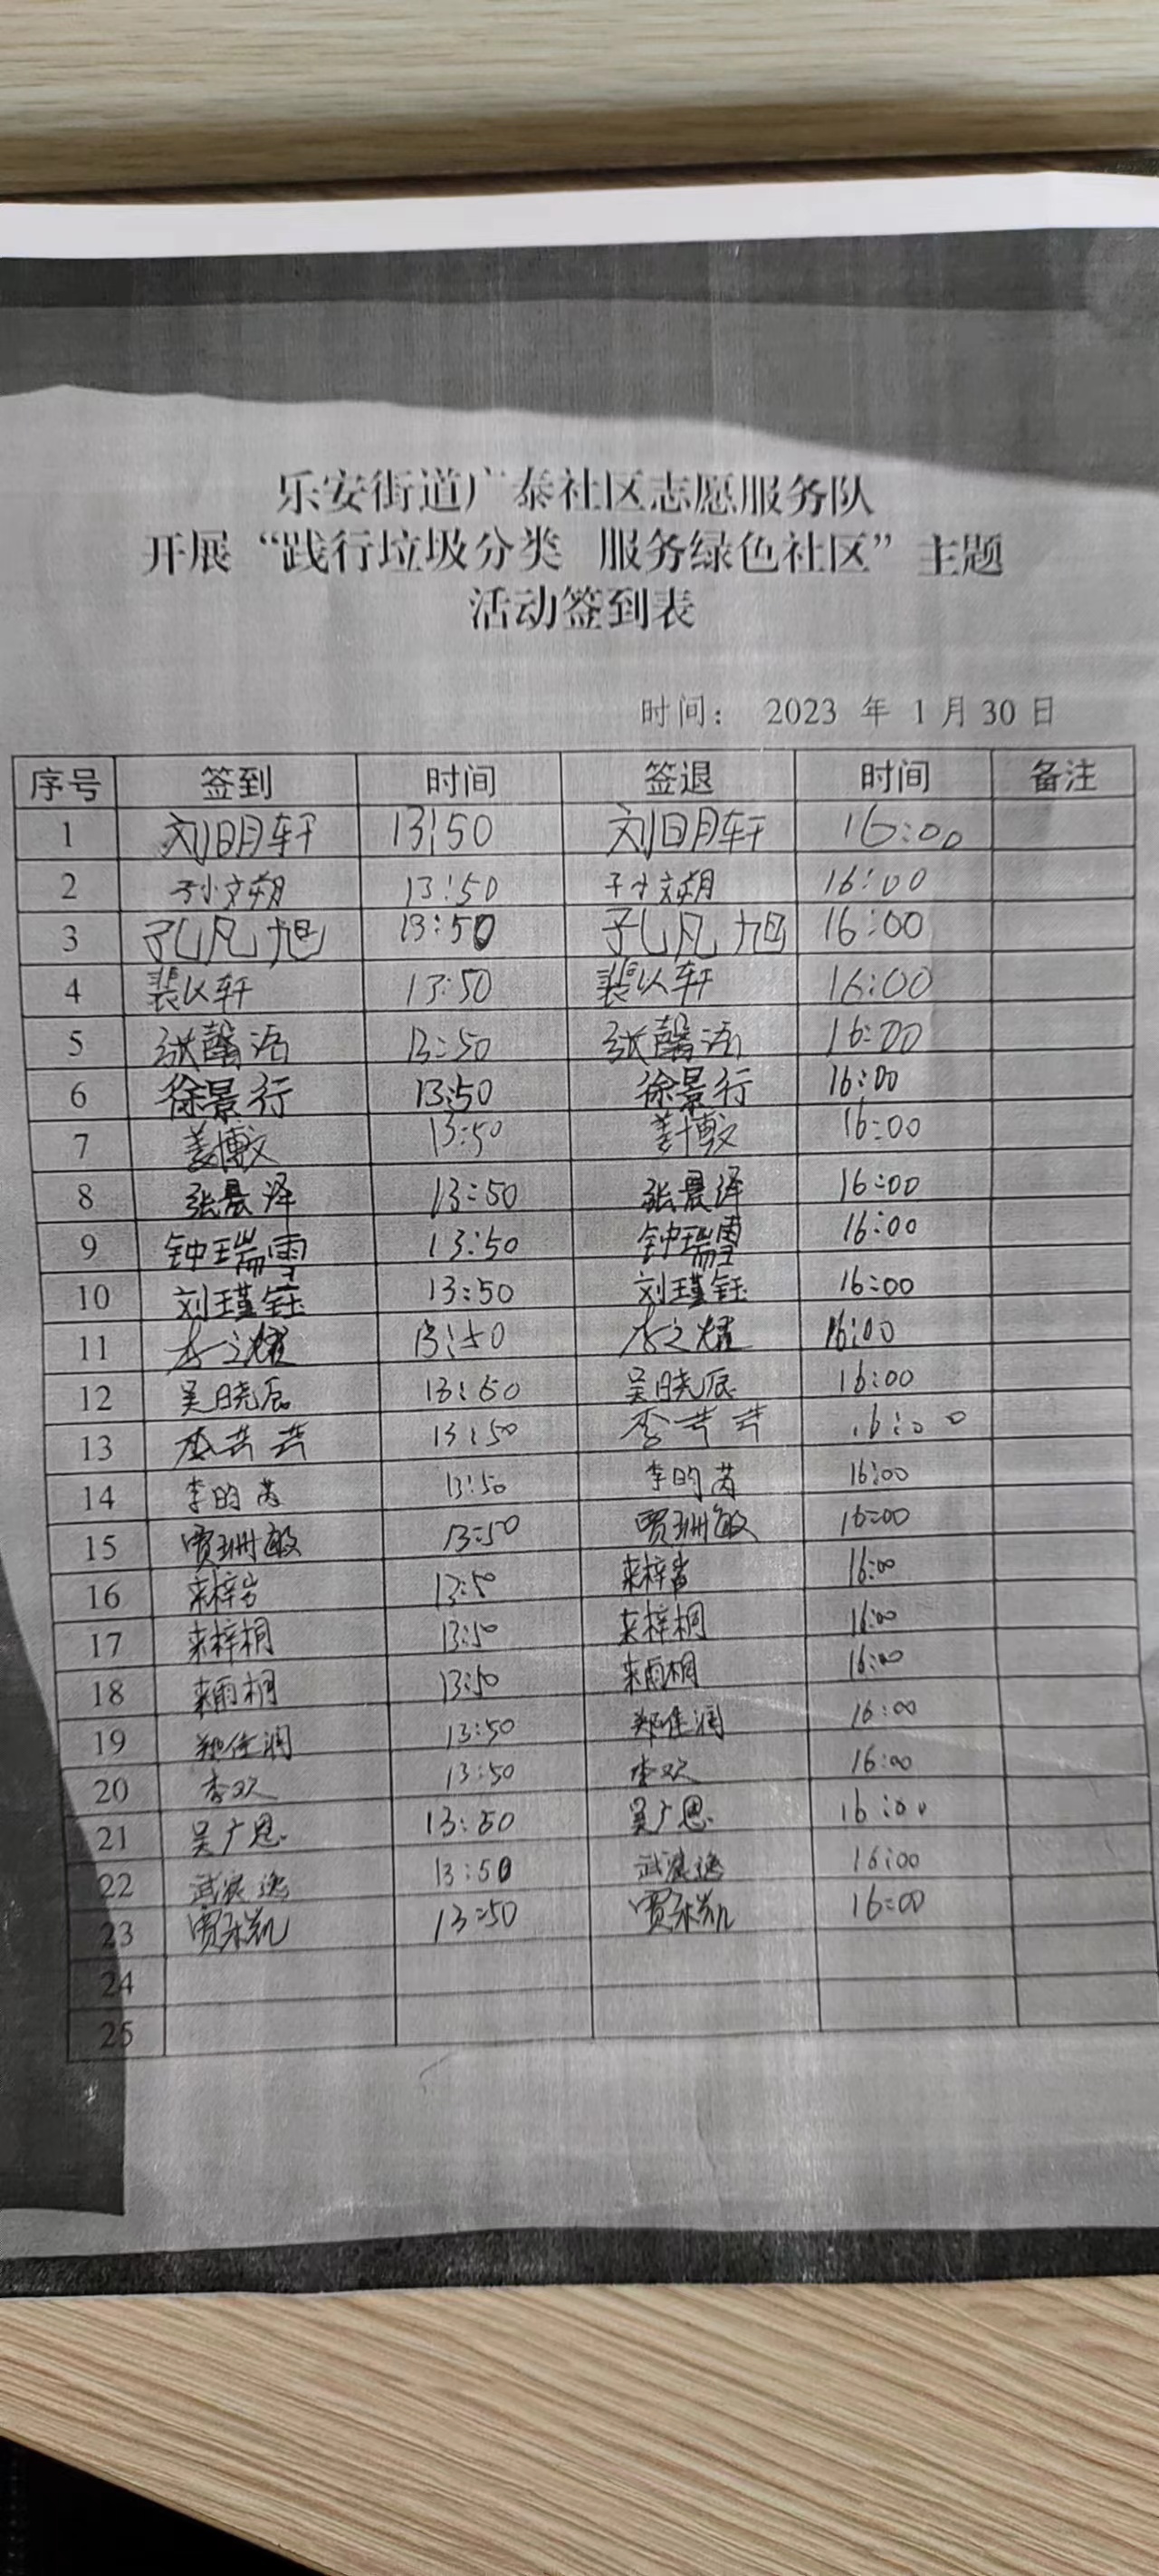 乐安街道广泰社区志愿服务队
开展“践行垃圾分类 服务绿色社区”主题
活动签到表
时间： 2023 年 1 月 30 日
序号 签到 时间 签退 时间 备注
1 刘明轩 13:50 刘明轩 16:00
2 孙文朔 13:50 孙文朔 16:00
3 孔凡旭 13:50 孔凡旭 16:00
4 裴以轩 13:50 裴以轩 16:00
5 张馨语 13:50 张馨语 16:00
6 徐景行 13:50 徐景行 16:00
7 姜博文 13:50 姜博文 16:00
8 张晨泽 13:50 张晨泽 16:00
9 钟瑞雪 13:50 钟瑞雪 16:00
10 刘瑾钰 13:50 刘瑾钰 16:00
11 李之耀 13:50 李之耀 16:00
12 吴晓辰 13:50 吴晓辰 16:00
13 李芊芊 13:50 李芊芊 16:00
14 李昀芮 13:50 李昀芮 16:00
15 贾珊敏 13:50 贾珊敏 16:00
16 来梓 13:50 来梓 16:00
17 来梓桐 13:50 来梓桐 16:00
18 来雨桐 13:50 来雨桐 16:00
19 郑佳润 13:50 郑佳润 16:00
20 李欢 13:50 李欢 16:00
21 吴广恩 13:50 吴广恩 16:00
22 武 逸 13:50 武 逸 16:00
23 贾承凯 13:50 贾承凯 16:00
24
25